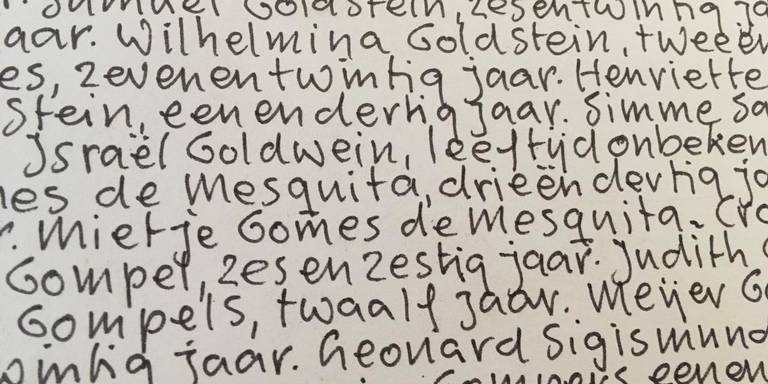 Samuel Goldstein, zesentwintig
aar. Wilhelmina Goldstein, tweeën
es, zevenentwintig jaar. Henriette
stein, eenendertig jaar. Simme Sa
Israël Goldwein, leeftijd onbeken
es de Mesquita, drieëndertig ja
r. Mietje Gomes de Mesquita. Cro
Gompel, zesenzestig jaar. Judith G
Gompels, twaalf jaar. Meijer Go
wintig jaar. Leonard Sigismund
eenen